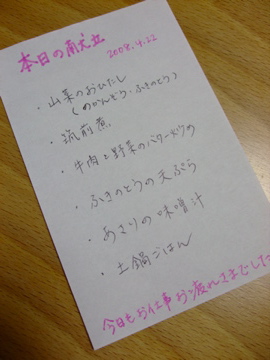 本日の献立
2008.4.22
・山菜のおひたし
(のかんぞう・ふきのとう)
・筑前煮
・牛肉と野菜のバターいため
・ふきのとうの天ぷら
・あさりの味噌汁
・土鍋ごはん
今日もお仕事お疲れさまでした